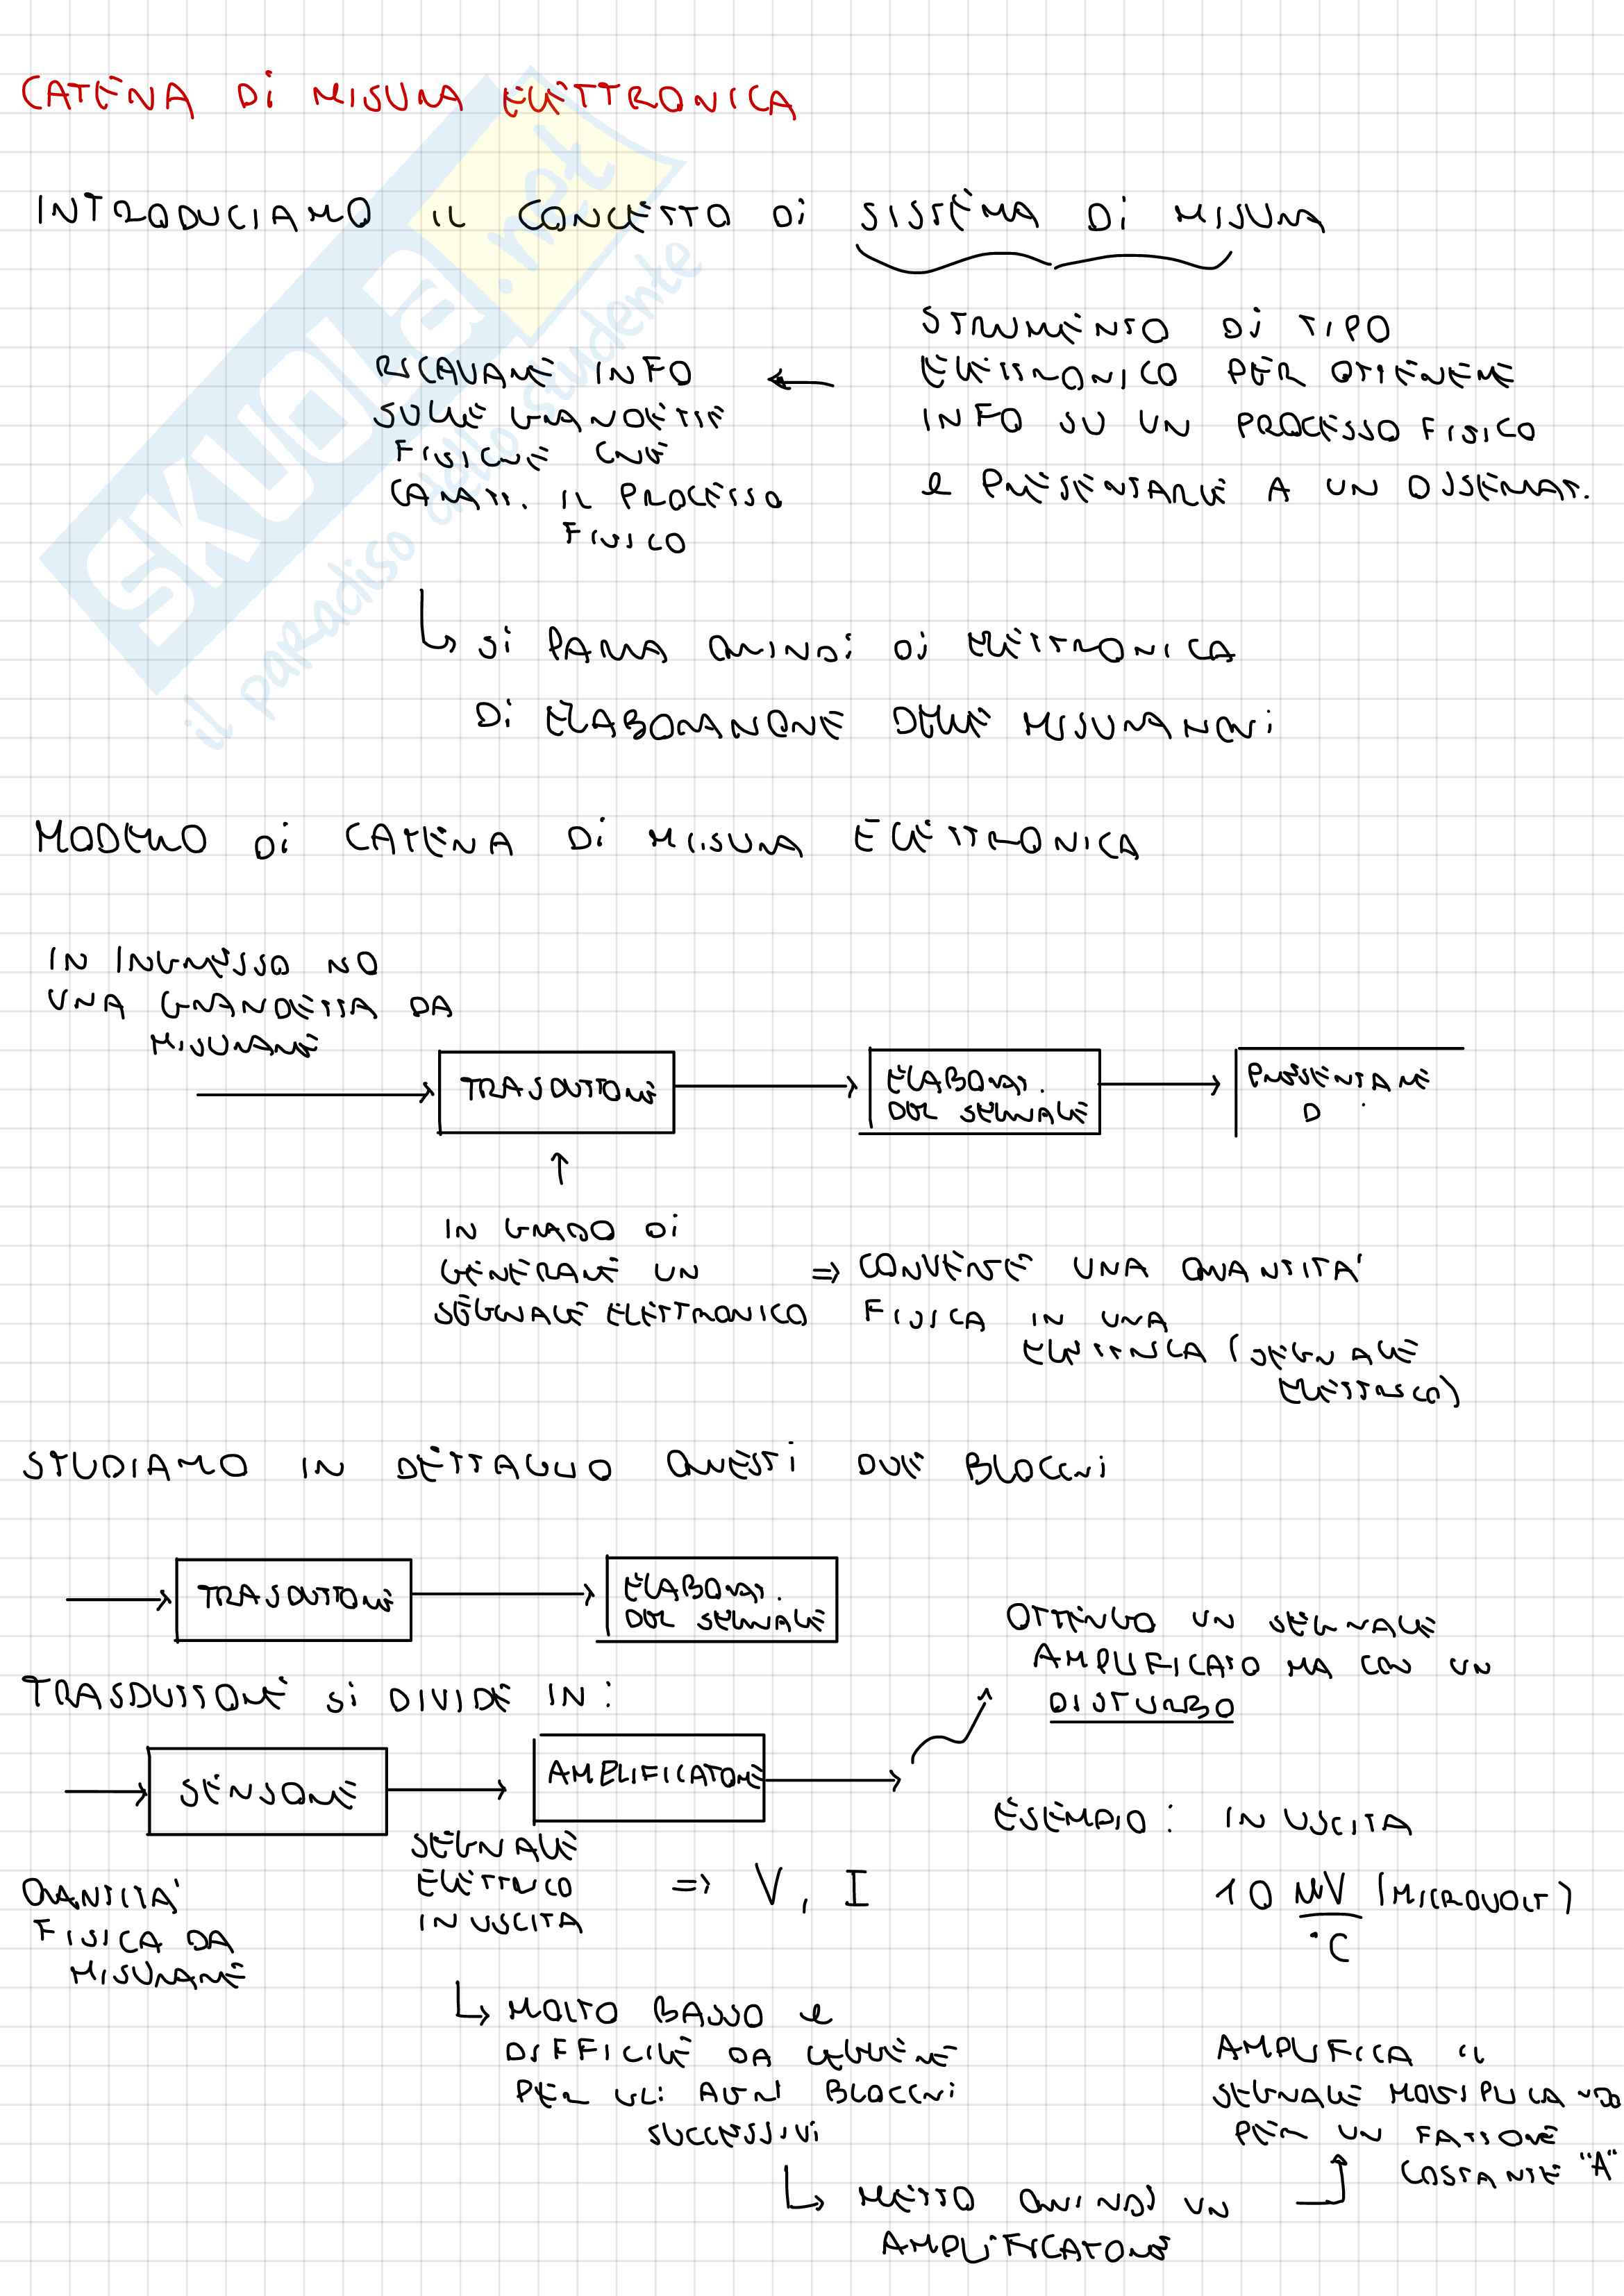 CATENA DI MISURA ELETTRONICA
INTRODUCIAMO IL CONCETTO DI SISTEMA DI MISURA
STRUMENTO DI TIPO
ELETTRONICO PER OTTENERE
INFO SU UN PROCESSO FISICO
e PRESENTARLE A UN OSSERVAT.
RICAVARE INFO
SULLE GRANDEZZE
FISICHE CHE
CARATT. IL PROCESSO
FISICO
SI PARLA QUINDI DI ELETTRONICA
DI ELABORAZIONE DELLE MISURAZIONI
MODELLO DI CATENA DI MISURA ELETTRONICA
IN INGRESSO HO
UNA GRANDEZZA DA
MISURARE
TRASDUTTORE
ELABORAT.
DEL SEGNALE
PRESENTARE
D
↑
IN GRADO DI
GENERARE UN
SEGNALE ELETTRONICO
=> CONVERTE UNA QUANTITA'
FISICA IN UNA
ELETTRICA (SEGNALE
ELETTRICO)
STUDIAMO IN DETTAGLIO QUESTI DUE BLOCCHI
TRASDUTTORE
ELABORAT.
DEL SEGNALE
TRASDUTTORE SI DIVIDE IN:
SENSORE
AMPLIFICATORE
OTTENGO UN SEGNALE
AMPLIFICATO MA CON UN
DISTURBO
QUANTITA'
FISICA DA
MISURARE
SEGNALE
ELETTRICO
IN USCITA
=> V, I
ESEMPIO: IN USCITA
10 μV (MICROVOLT)
°C
MOLTO BASSO e
DIFFICILE DA LEGGERE
PER GLI ALTRI BLOCCHI
SUCCESSIVI
METTO QUINDI UN
AMPLIFICATORE
AMPLIFICA IL
SEGNALE MOLTIPLICANDO
PER UN FATTORE
COSTANTE "A"
SKUOLA.net
il paradiso dello studente